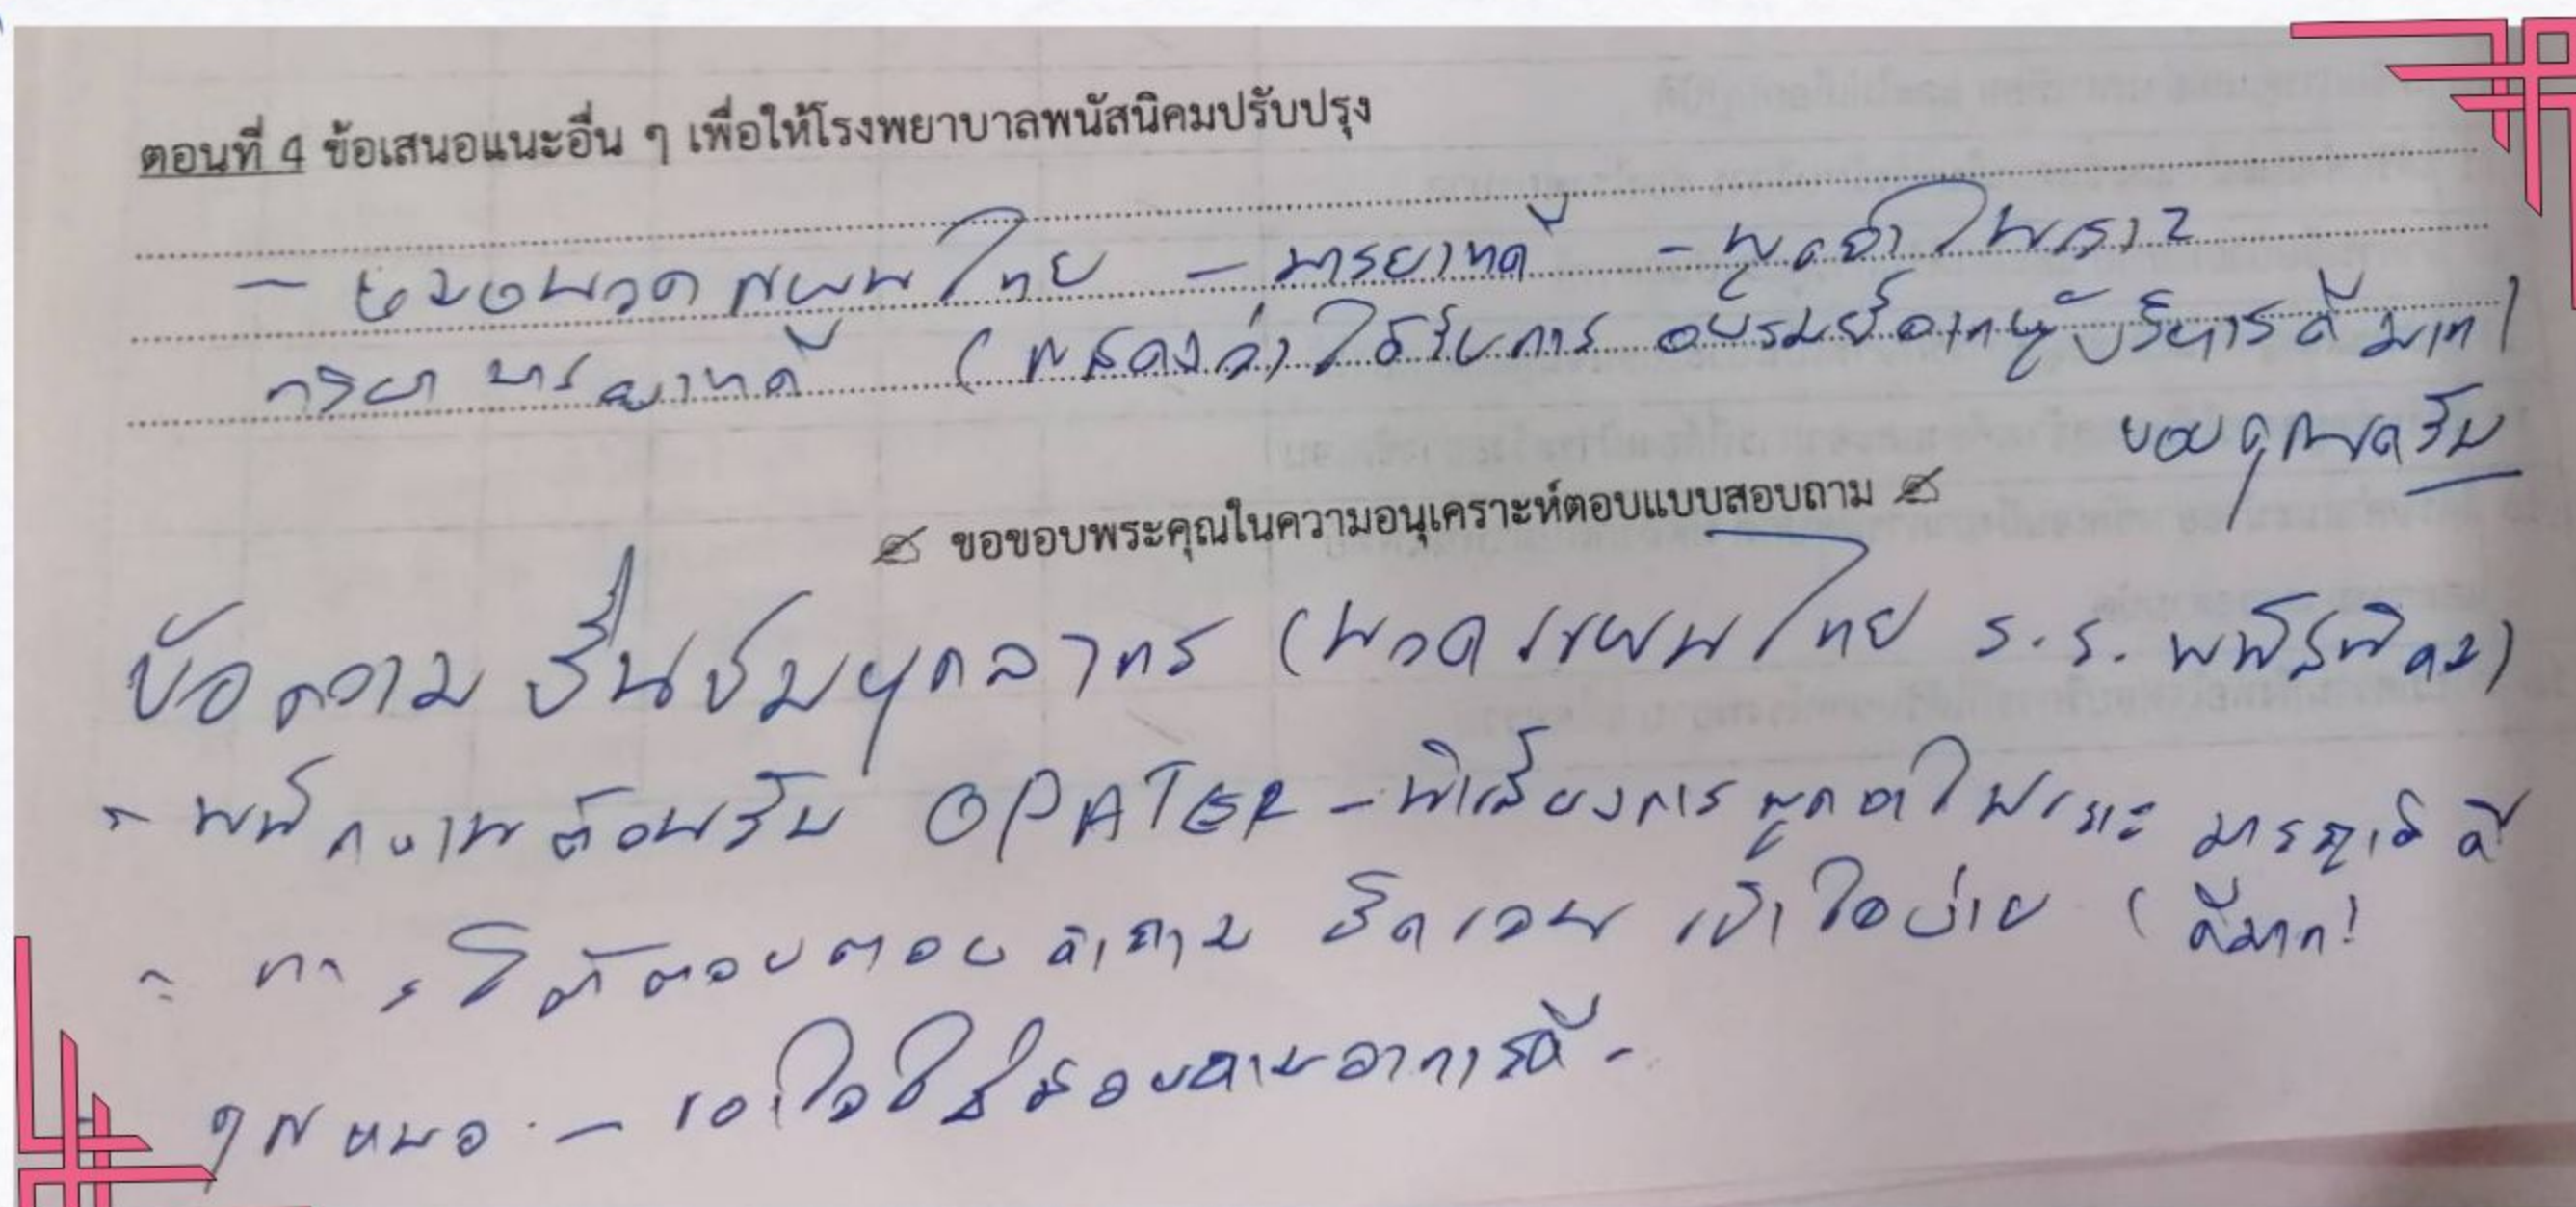 ตอนที่ 4 ข้อเสนอแนะอื่น ๆ เพื่อให้โรงพยาบาลพนัสนิคมปรับปรุง
- นวดแผนไทย - มารยาทดี - พูดจาไพเราะ
กริยา มารยาทดี (แสดงว่าได้รับการอบรม ผู้บริหารดีมาก)
ขอบคุณครับ
ขอขอบพระคุณในความอนุเคราะห์ตอบแบบสอบถาม
ข้อความชื่นชมบุคลากร (นวดแผนไทย ร.ร. พนัสนิคม)
- พนักงานต้อนรับ OPATER - การพูดจาไพเราะ ดี
- การโต้ตอบตอบคำถาม ชัดเจน เข้าใจง่าย (ดีมาก!
แพทย์ - เอาใจใส่สอบถามอาการดี -